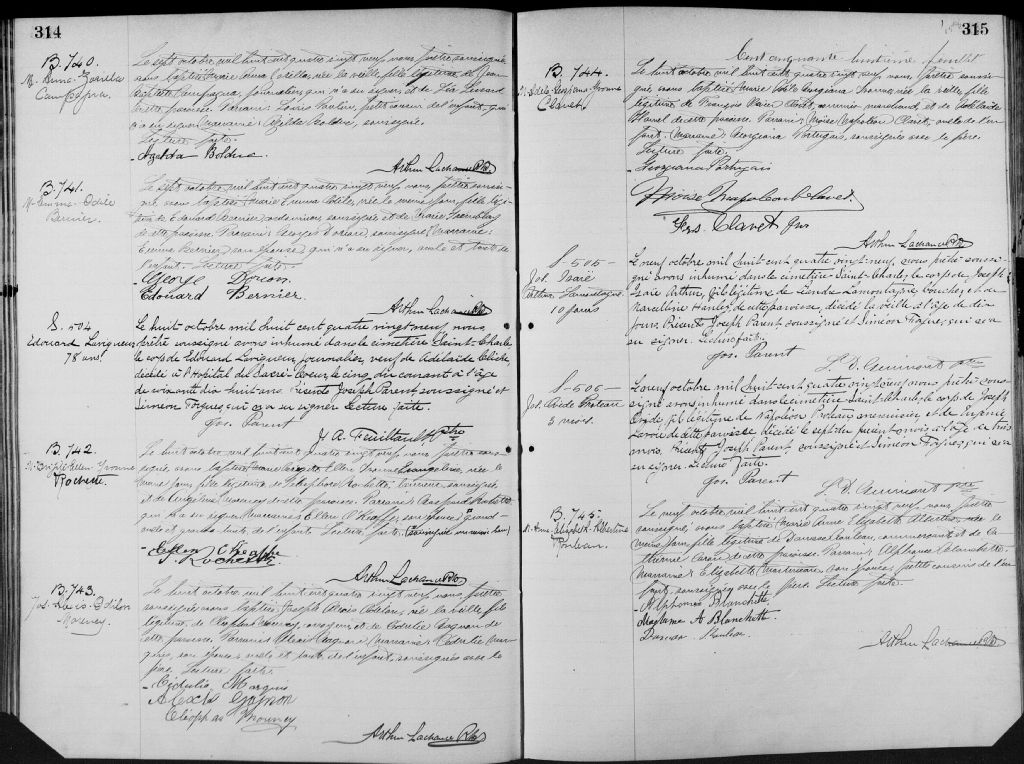 314
B. 740.
M. Anna-
Campagna.
Le sept octobre, mil huit cent quatre vingt neuf, nous, prêtre soussigné
avons baptisé Marie Anna née la veille fille légitime de Jean
Campagna, journalier, qui n'a su signer, et de
de cette paroisse. Parrain: petit cousin de l'enfant, qui
n'a su signer; marraine: Azilda Bolduc, soussignée.
Lecture faite.
Azalda Bolduc
Arthur Lachance Ptre
B. 741.
M. Emma-Odile
Bernier.
Le sept octobre, mil huit cent quatre vingt neuf, nous, prêtre soussi-
gné, avons baptisé Marie Emma Odile, née le même jour, fille légi-
time de Edouard Bernier, cordonnier, soussigné et de Marie Tremblay
de cette paroisse. Parrain: Georges Dorion, soussigné; marraine:
Emma Bernier, son épouse qui n'a su signer, oncle et tante de
l'enfant. Lecture faite.
George Dorion.
Edouard Bernier.
Arthur Lachance Ptre
S. 504
Edouard Lavigueur
78 ans.
Le huit octobre mil huit cent quatre vingt neuf nous
prêtre soussigné avons inhumé dans le cimetière Saint-Charles
le corps de Edouard Lavigueur, journalier, veuf de Adelaide
décédé à l'Hôpital du Sacré-Coeur, le cinq du courant à l'âge
de soixante dix-huit ans. Présents Joseph Parent, soussigné et
Siméon Fagues, qui n'a su signer. Lecture faite.
Jos. Parent
J. A. Feuiltault Ptre
B. 742.
M. Brigite-Ellen-Yvonne
Rochette.
Le huit octobre, mil huit cent quatre vingt neuf, nous, prêtre sous-
signé, avons baptisé Marie Brigite Ellen Yvonne Evangeline, née le
même jour, fille légitime de Télesphore Rochette, corroyeur, soussigné,
et de Angelina de cette paroisse. Parrain: Gaspard Rochette
qui n'a su signer; marraine: Ellen O'Keaffe, son épouse, grand-
oncle et grand'tante de l'enfant. Lecture faite.
Ellen O'Keaffe
T. Rochette
Arthur Lachance Ptre
B. 743.
Jos. Alexis-Odilon
Mourney.
Le huit octobre, mil huit cent quatre vingt neuf, nous, prêtre
soussigné, avons baptisé Joseph Alexis Odilon, né la veille, fils
légitime de Cléophas Mourney, et de Cordelie Gagnon de
cette paroisse. Parrain: Alexis Gagnon; marraine: Cédulie Mar-
quis, son épouse, oncle et tante de l'enfant, soussignés avec le
père. Lecture faite.
Cédulie Marquis
Alexis Gagnon
Cléophas Mourney
Arthur Lachance Ptre
315
Cent cinquante huitième feuillet
B. 744.
M. Odile-Georgiana-Yvonne
Clavet.
Le huit octobre, mil huit cent quatre vingt neuf, nous, prêtre soussi-
gné, avons baptisé Marie Odile Georgiana Yvonne, née la veille, fille
légitime de François Xavier Clavet, commis marchand, et de Adelaide
de cette paroisse. Parrain: Moïse Napoléon Clavet, oncle de l'en-
fant; marraine: Georgiana Portugais, soussignés avec le père.
Lecture faite.
Georgiana Portugais
Moïse Napoléon Clavet.
Frs. Clavet Jnr
Arthur Lachance Ptre
S-505-
Jos. Isaïe
Arthur Lamontagne.
10 jours
Le neuf octobre mil huit-cent quatre vingt neuf, nous prêtre soussi-
gné avons inhumé dans le cimetière Saint-Charles, le corps de Joseph
Isaïe Arthur, fils légitime de Lamontagne, boucher, et de
Marcelline de cette paroisse, décédé la veille à l'âge de dix
jours. Présents Joseph Parent soussigné et Siméon Fagues, qui n'a
su signer. Lecture faite.
Jos. Parent
L. D. Guimont Ptre
S-506-
Jos. Ovide Proteau
3 mois.
Le neuf octobre mil huit-cent quatre-vingt neuf nous prêtre sous-
signé avons inhumé dans le cimetière Saint-Charles, le corps de Joseph
Ovide, fils légitime de Napoléon Proteau menuisier et de Euphémie
Lavoie de cette paroisse décédé le sept du présent mois à l'âge de trois
mois. Présents Joseph Parent, soussigné et Siméon Fagues, qui n'a
su signer. Lecture faite.
Jos. Parent
L. D. Guimont Ptre
B. 745.
M. Anne-Elizabeth-Albertine
Rouleau.
Le neuf octobre, mil huit cent quatre vingt neuf, nous, prêtre
soussigné, avons baptisé Marie Anne Elizabeth Albertine, née le
même jour, fille légitime de Damase Rouleau, commerçant et de Ca-
therine de cette paroisse. Parrain: Alphonse Blanchette.
Marraine: Elizabeth son épouse, petit cousin de l'en-
fant, soussignés avec le père. Lecture faite.
Alphonse Blanchette
Madame A Blanchette
Damase Rouleau
Arthur Lachance Ptre